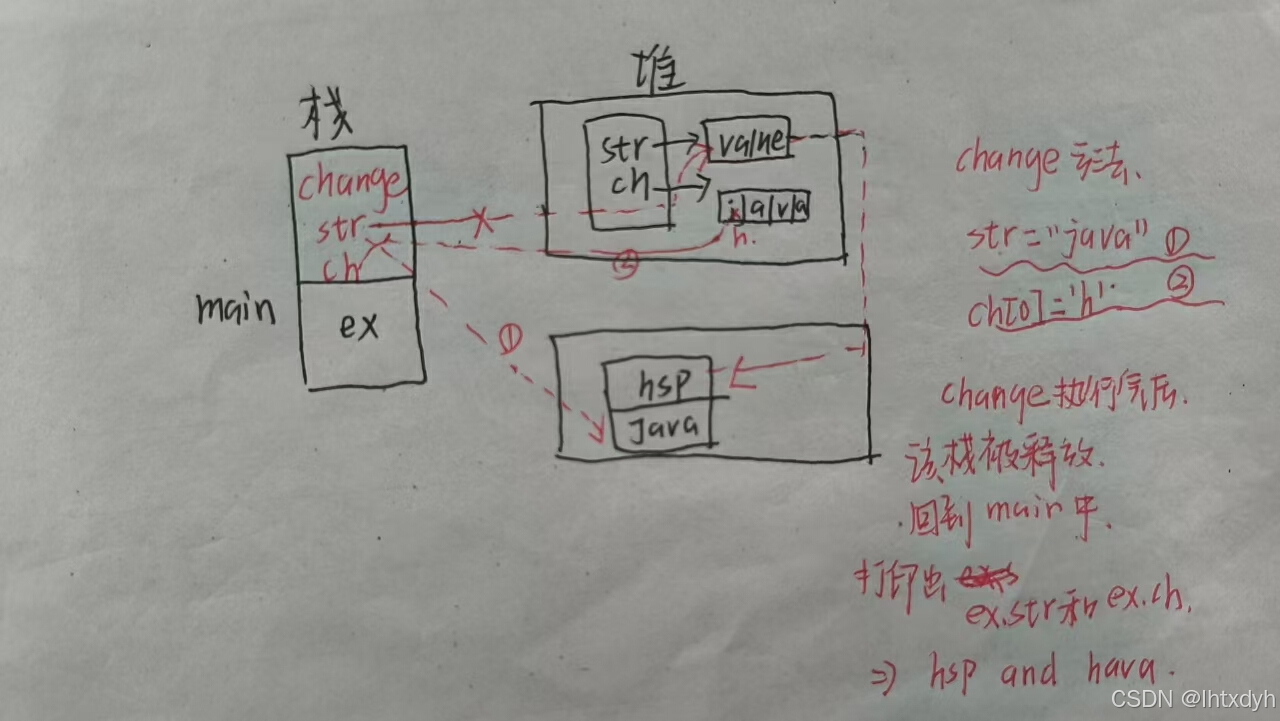 栈
change
str
ch
main
ex
堆
str
ch
value
j a v a
h.
②
①
hsp
java
change 方法.
str="java" ①
ch[0]='h'. ②
change执行完后.
该栈被释放.
回到 main 中.
打印出
ex.str和ex.ch.
=> hsp and hava.
CSDN @lhtxdyh